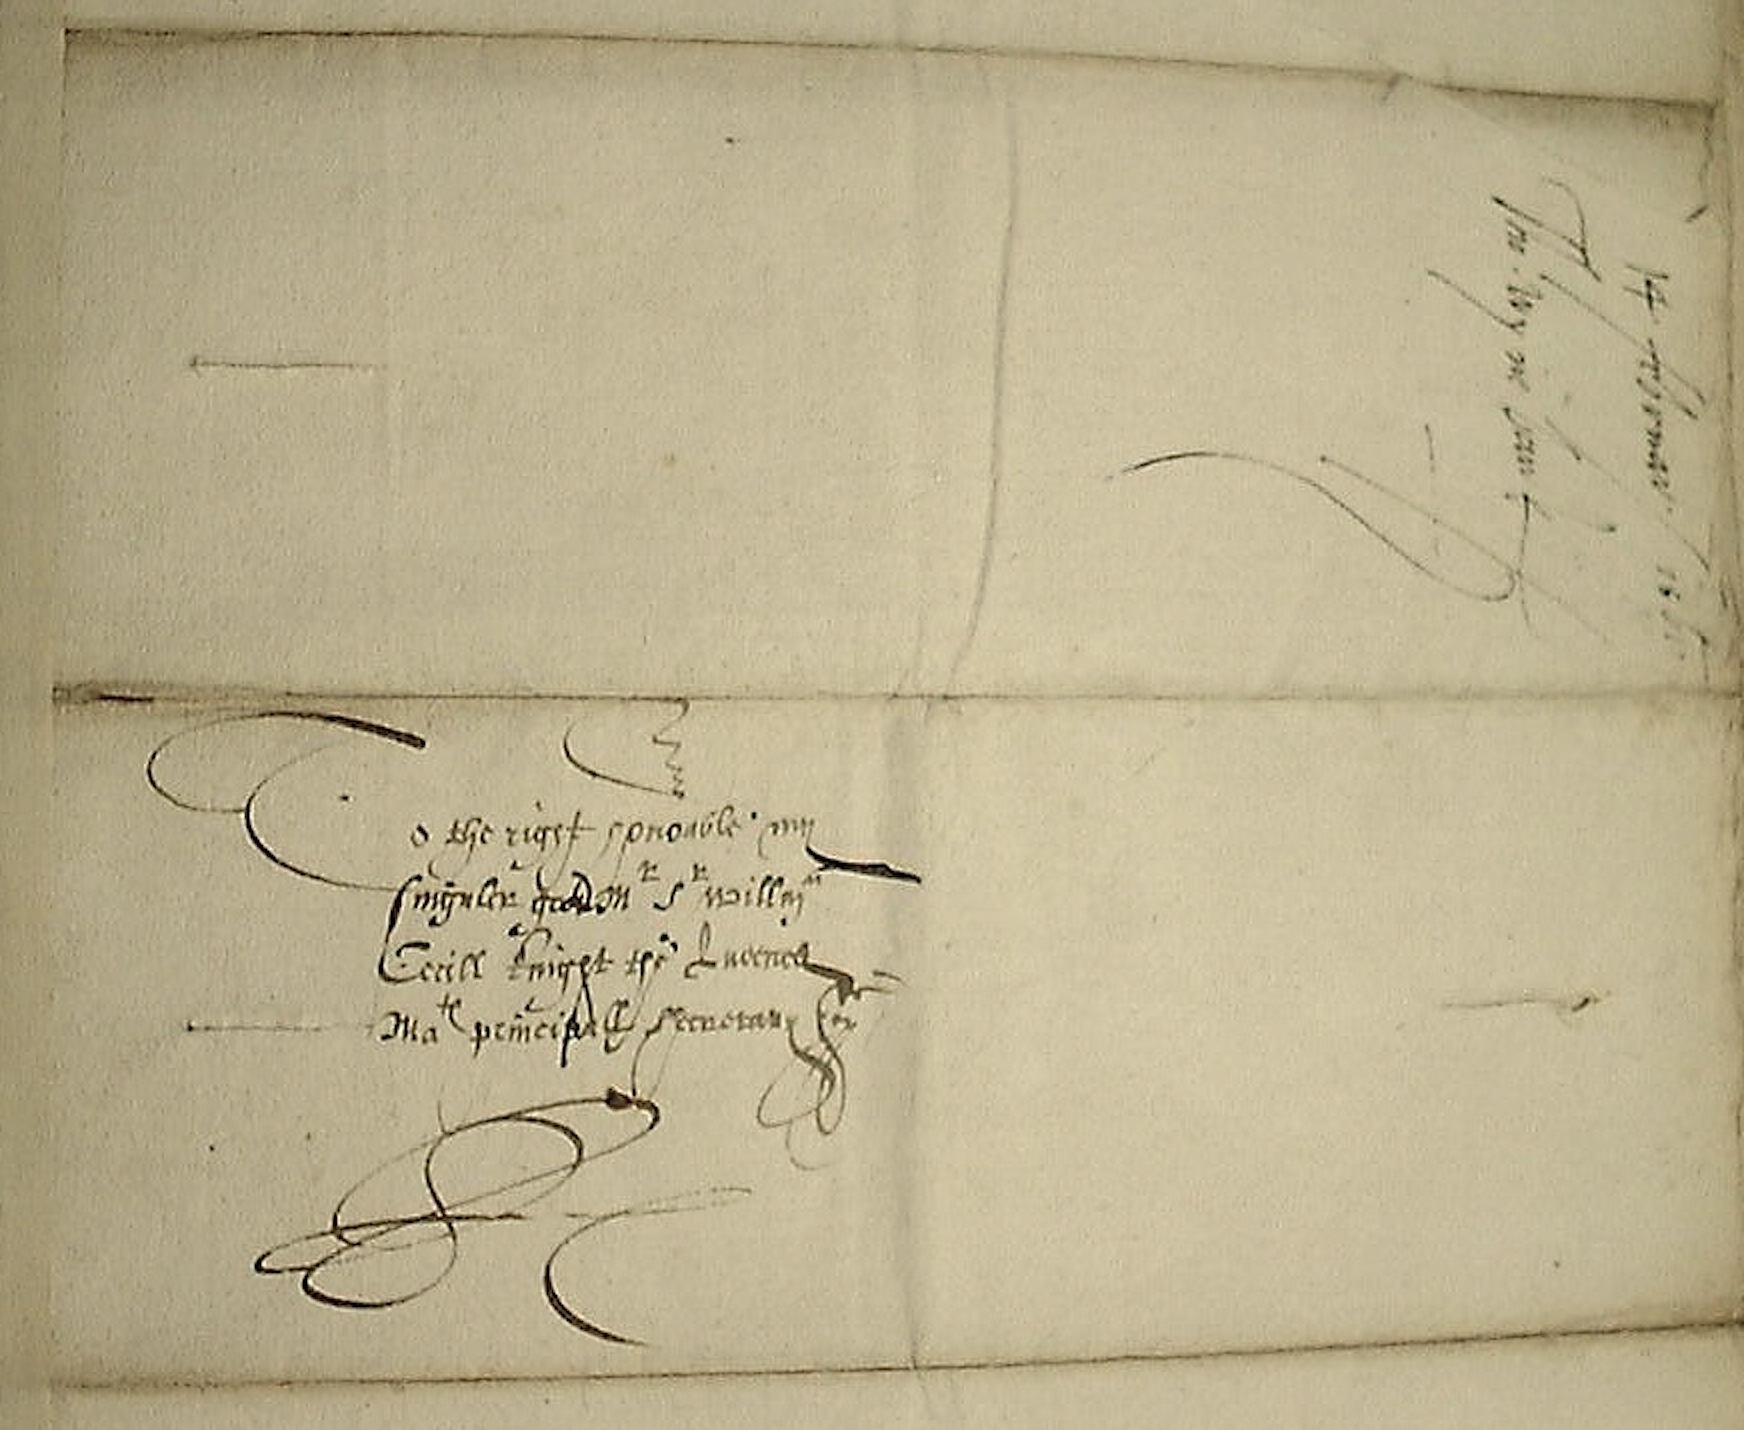 To the right honorable my
singuler good Mr Sr Willm
Cecill knight the Quenes
Mats principall Secretary
14 Februar. 156